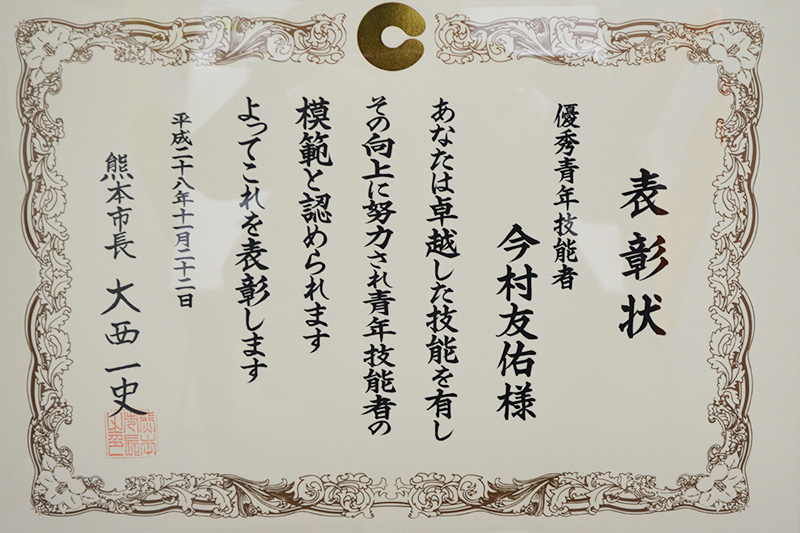 表彰状
優秀青年技能者
今村友佑様
あなたは卓越した技能を有し
その向上に努力され青年技能者の
模範と認められます
よってこれを表彰します
平成二十八年十一月二十二日
熊本市長 大西一史
熊本市長之印